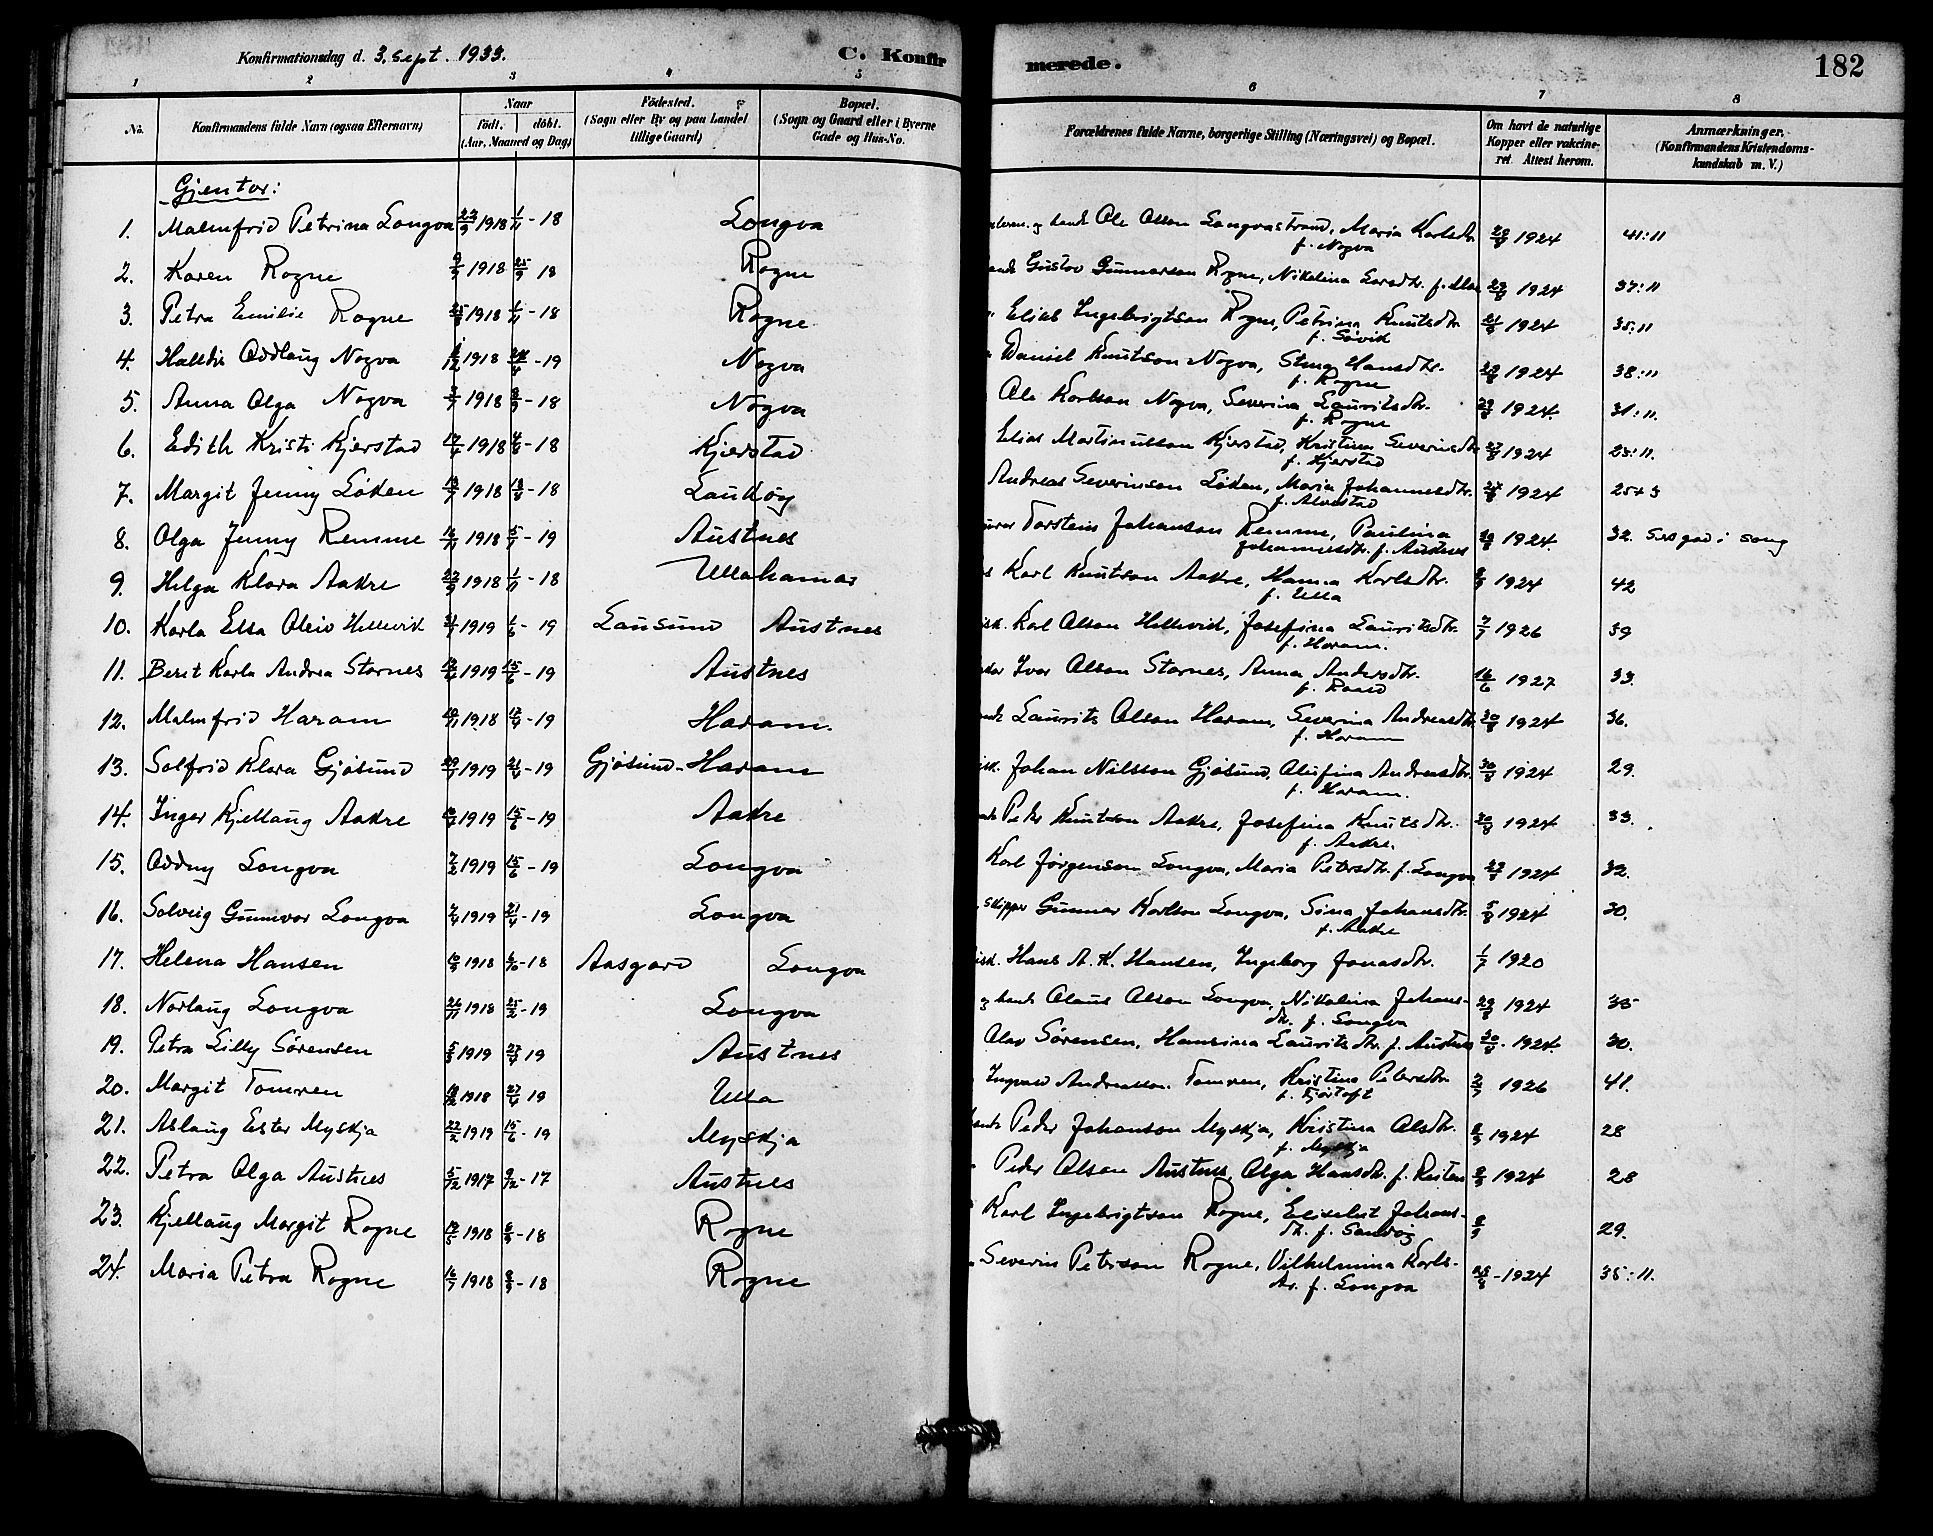 Konfirmationsdag d. 3. Sept. 1933.
C. Konfirmerede.
182
1 2 3 4 5 6 7 8
No.
Konfirmandens fulde Navn (ogsaa Efternavn)
Naar
födt. döbt.
(Aar, Maaned og Dag)
Födested.
(Sogn eller By og paa Landet tillige Gaard)
Bopæl.
(Sogn og Gaard eller i Byerne Gade og Hus-No.
Forældrenes fulde Navne, borgerlige Stilling (Næringsvei) og Bopæl.
Om havt de naturlige Kopper eller vakcineret. Attest herom.
Anmærkninger.
(Konfirmandens Kristendomskundskab m. V.)
Gjentor:
1. Malmfrid Petrina Longva 1918 1/11 - 18 Longva Ole Olson Longvastrand, Maria Karlsdtr. f. Nogva 1924 41:11
2. Karen Rogne 1918 25/9 18 Rogne Gustav Gunnarson Rogne, Nikolina 1924 37:11
3. Petra Emilie Rogne 1918 1/11 - 18 Rogne Elias Ingebrigtson Rogne, Petrina Knutsdtr. f. Søvik 1924 35:11
4. Halldis Oddlaug Nogva 1918 - 19 Nogva Daniel Knutson Nogva, Hansdtr. f. Rogne 1924 38:11
5. Anna Olga Nogva 1918 - 18 Nogva Ole Karlson Nogva, Severina Lauritsdtr. f. Rogne 1924. 31:11.
6. Edith Kristi Kjerstad 1918 - 18 Kjerstad Elias Martinusson Kjerstad, Kristina Severinsdtr. f. Kjerstad 1924 23:11.
7. Margit Jenny Løken 1918 - 18 Laukøy Andreas Severinson Løken, Maria Johannesdtr. f. Alvestad 1924 25+3
8. Olga Jenny Remme 1918 - 19 Austnes Torstein Johanson Remme, Paulina Johannesdtr. f. Austnes 1924. 32. song
9. Helga Klara Aakre 1918 1/11 - 18 Ullahamar Karl Knutson Aakre, Hanna Karlsdtr. f. Ulla 1924 42
10. Karla Elsa Oleiv Hellevik 1919 1/6 - 19 Lausund Austnes Karl Olson Hellevik, Josefina Lauritsdtr. f. Haram. 1926 39
11. Berit Karla Andrea Stornes 1919 15/6 - 19 Austnes Ivar Olson Stornes, Anna Andersdtr. 16/6 1927 33.
12. Malmfrid Haram 1918 - 19 Haram. Laurits Olson Haram, Severina Andreasdtr. f. Haram 30/8 1924 36.
13. Solfrid Klara Gjøsund 1919 - 19 Gjøsund - Haram Johan Nilsson Gjøsund, Olufina Andreasdtr. f. Haram. 30/8 1924 29.
14. Inger Kjellaug Aakre 1919 15/6 - 19 Aakre Peter Knutson Aakre, Josefina Knutsdtr. f. Aakre. 30/8 1924 33.
15. Oddny Longva 7/2 1919 15/6 - 19 Longva Karl Jørgenson Longva, Maria Petersdtr. f. Longva 1924 32.
16. Solveig Gunnvor Longva 1919 21/4 - 19 Longva Skipper Gunnar Karlson Longva, Sina Johansdtr. f. Aakre 1924 30.
17. Helena Hansen 1918 - 18 Aasgard Longva Hans A. K. Hansen, Ingeborg Jonasdtr. 1/7 1920
18. Norlaug Longva 26/11 1918 25/2 - 19 Longva Olaus Olson Longva, Nikolina Johansdtr. f. Longva 29/8 1924 35
19. Petra Lilly Sørensen 1919 27/4 19 Austnes Olav Sørensen, Hansina Lauritsdtr. f. Austnes 30/8 - 1924. 30.
20. Margit Tomren 1918 27/4 19 Ulla Ingvald Andreasson Tomren, Kristine Petersdtr. f. Fjørtoft 1926 41.
21. Aslaug Ester Myskja 22/2 1919 15/6 - 19 Myskja Peder Johanson Myskja, Kristina Olsdtr. f. Myskja 1924 28
22. Petra Olga Austnes 5/12 1917 - 17 Austnes Peder Olson Austnes, Olga Hansdtr. f. 1924 28
23. Kjellaug Margit Rogne 1918 - 18 Rogne Karl Ingebrigtson Rogne, Johansdtr. f. 29.
24. Maria Petra Rogne 16/7 1918 - 18 Rogne Severin Peterson Rogne, Vilhelmina Karlsdtr. f. Longva - 1924 35:11.